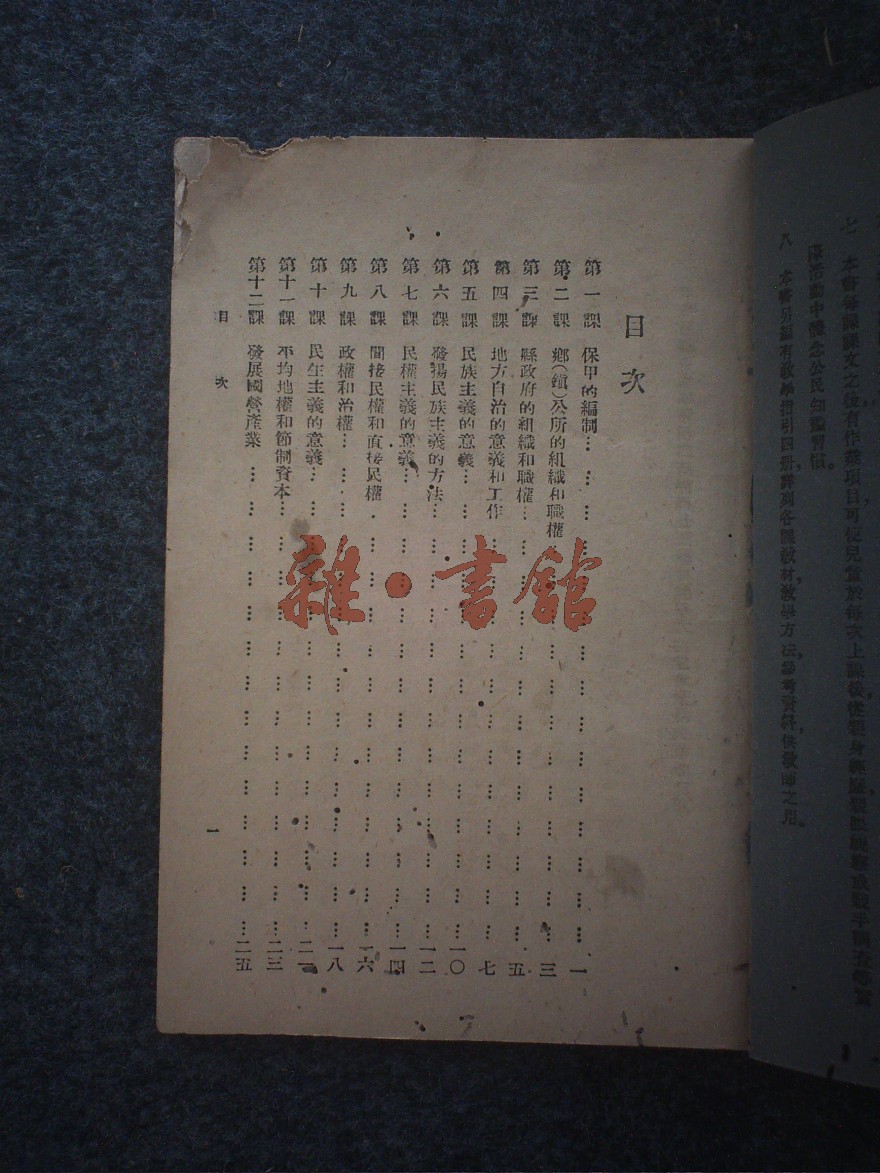 七　本書每課課文之後有作業項目可使兒童於每次上課後從
活動中體念公民知識習慣。
八　本書另編有教學指引四册，詳列各課教材，教學方法參考資料供教師之用。
目次
第一課　保甲的編制………一
第二課　鄉(鎮)公所的組織和職權………三
第三課　縣政府的組織和職權………五
第四課　地方自治的意義和工作………七
第五課　民族主義的意義………一〇
第六課　發揚民族主義的方法………一二
第七課　民權主義的意義………一四
第八課　間接民權和直接民權………一六
第九課　政權和治權………一八
第十課　民生主義的意義………二一
第十一課　平均地權和節制資本………二三
第十二課　發展國營產業………二五
目次
一
雜·書館